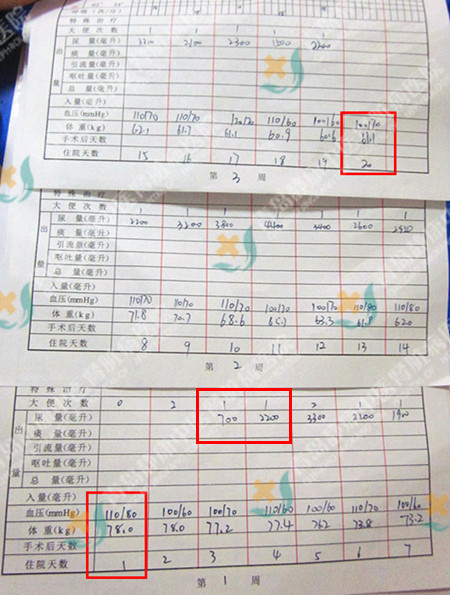 特殊治疗
大便次数 1 1 1 1
出量 尿量(毫升) 2100 2300 2200
痰量(毫升)
引流量(毫升)
呕吐量(毫升)
总量(毫升)
入量(毫升)
血压(mmHg) 110/70 110/70 120/70 110/60 100/60 100/70
体重(kg) 62.1 61.7 61.1 60.9 60.6 61.1
手术后天数
住院天数 15 16 17 18 19 20
第 3 周
特殊治疗
大便次数 1 1 1 1 1 1
出量 尿量(毫升) 2200 3200 3800 4400 3400 2600
痰量(毫升)
引流量(毫升)
呕吐量(毫升)
总量(毫升)
入量(毫升)
血压(mmHg) 110/70 110/70 110/70 100/70 100/70 110/80 110/80
体重(kg) 71.8 70.7 68.6 63.3 61.8 62.0
手术后天数
住院天数 8 9 10 11 12 13 14
第 2 周
特殊治疗
大便次数 0 2 1 1 2 1 1
出量 尿量(毫升) 700 2200 3300 2200 1900
痰量(毫升)
引流量(毫升)
呕吐量(毫升)
总量(毫升)
入量(毫升)
血压(mmHg) 110/80 100/60 100/70 110/60 100/60 110/70 100/60
体重(kg) 78.0 78.0 77.2 77.4 76.2 73.8 73.2
手术后天数
住院天数 1 2 3 4 5 6 7
第 1 周